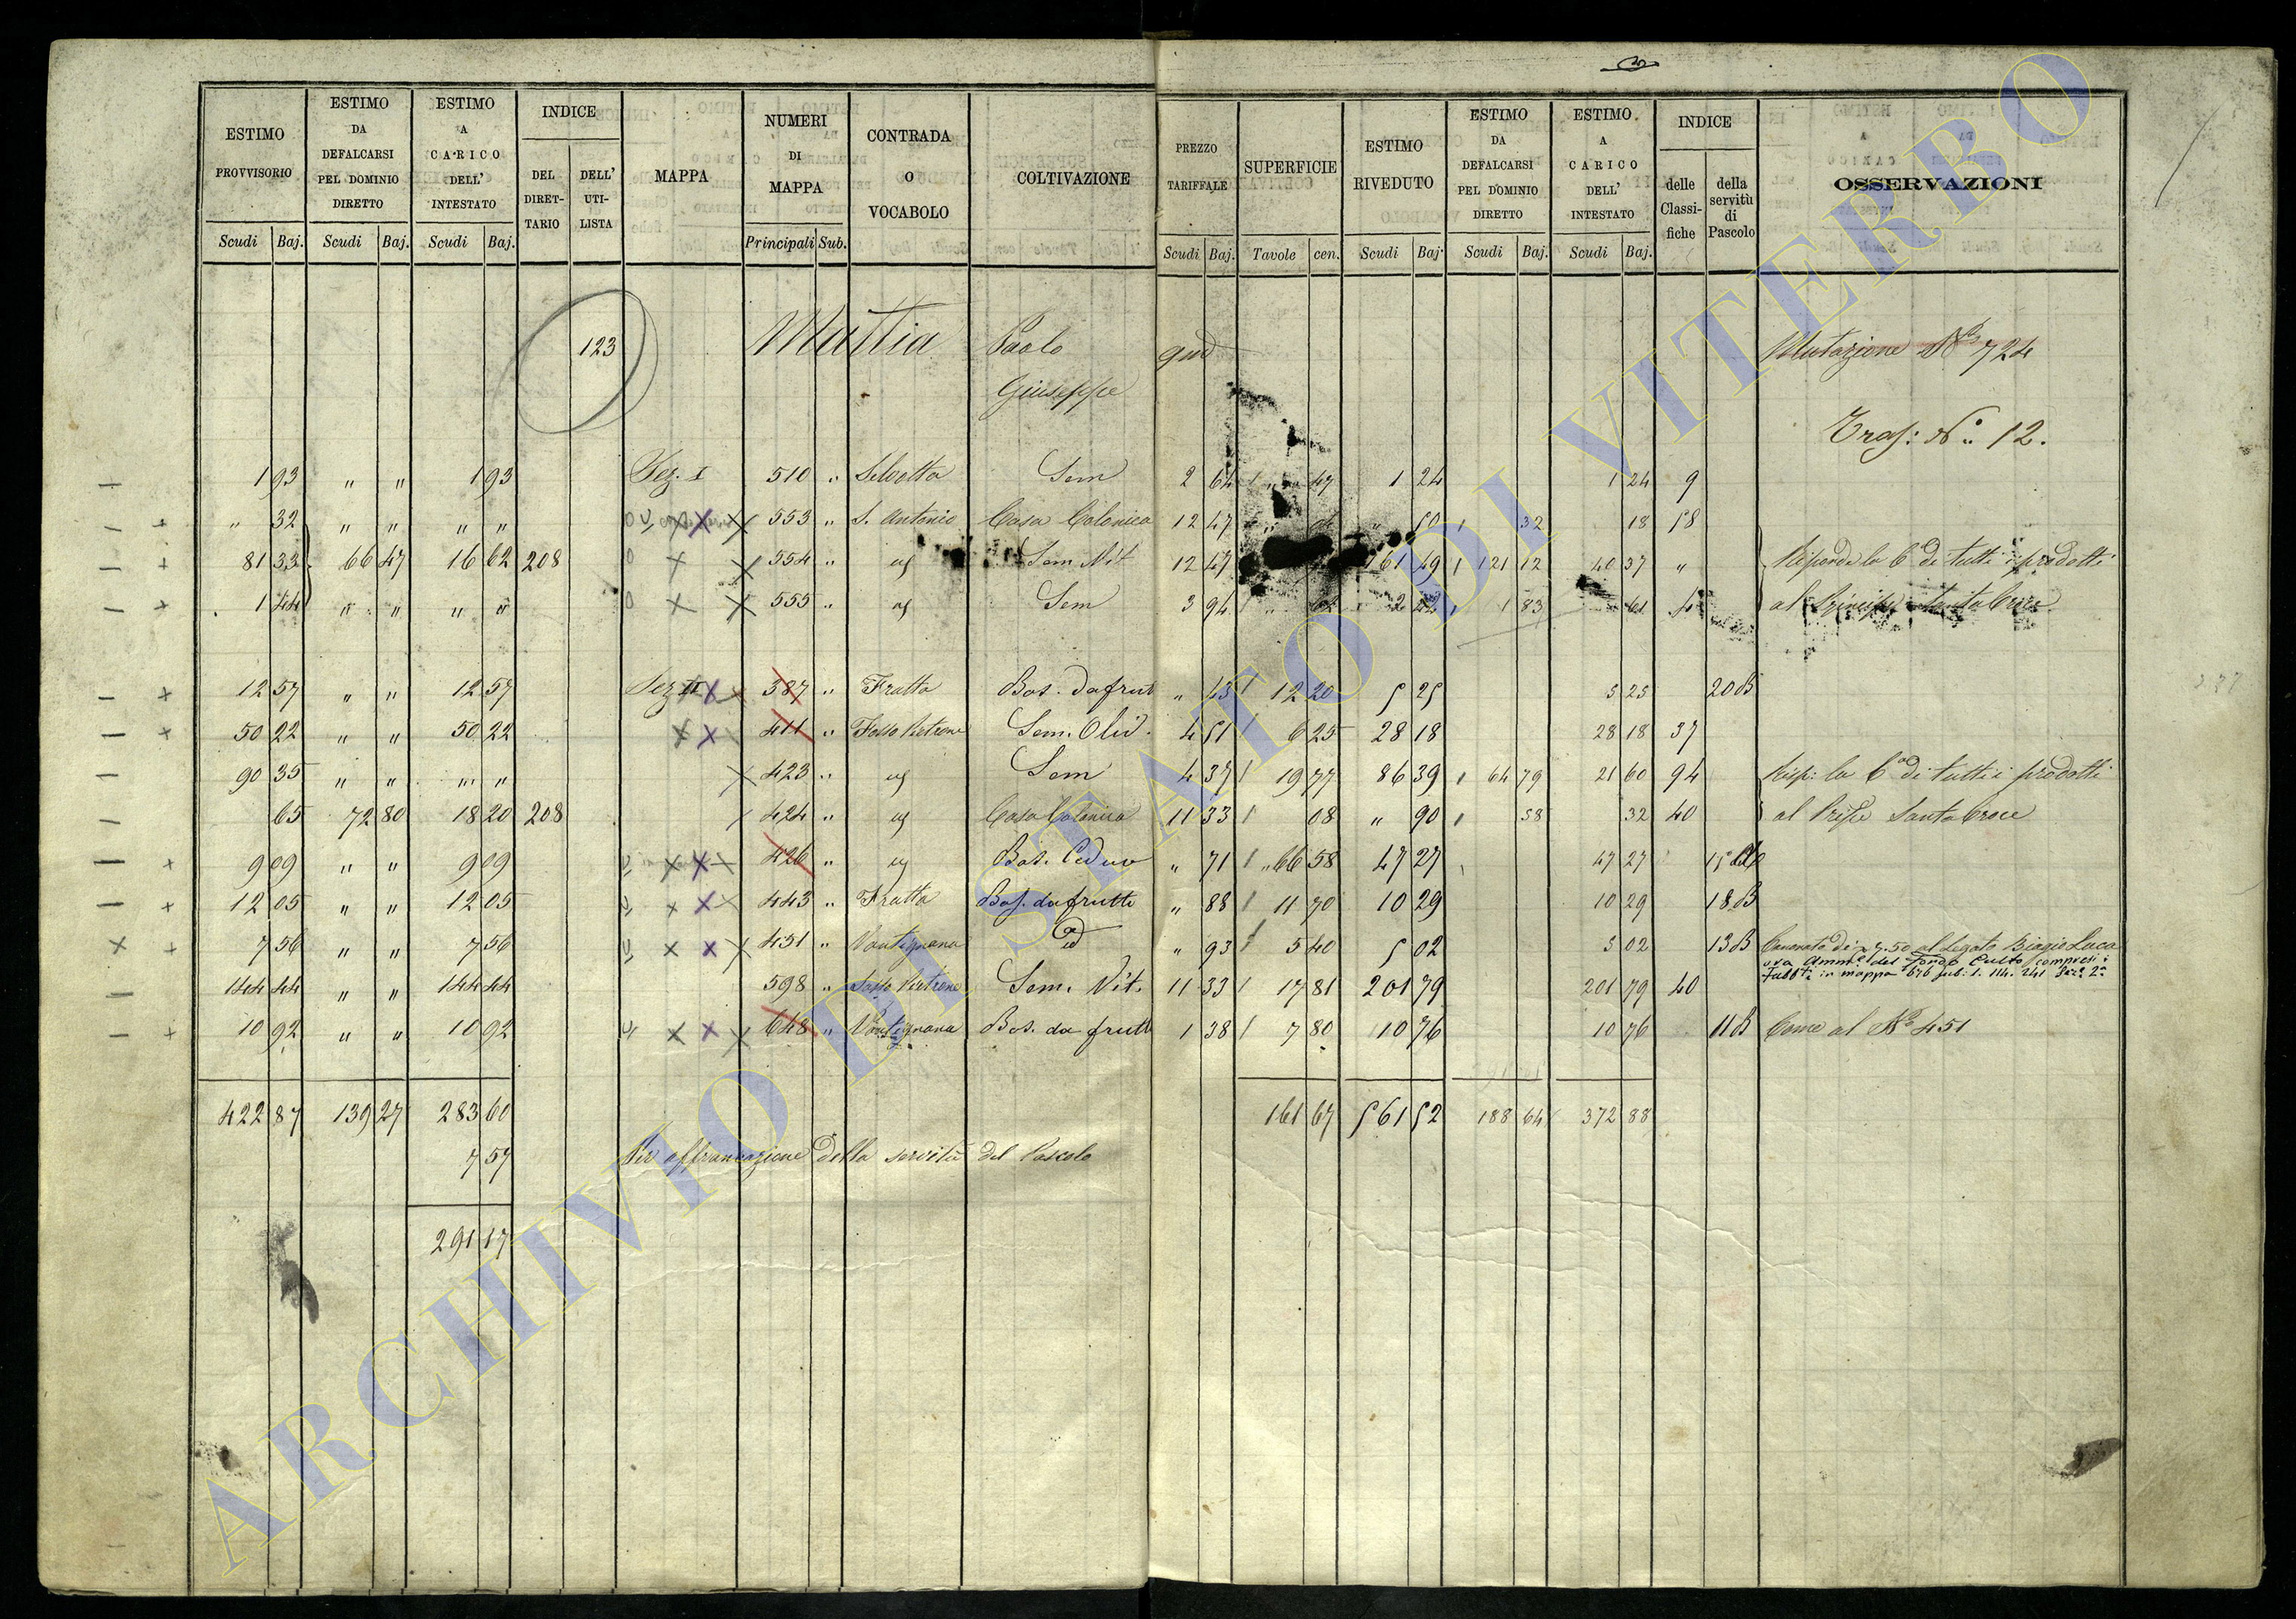 3
ESTIMO PROVVISORIO | ESTIMO DA DEFALCARSI PEL DOMINIO DIRETTO | ESTIMO A CARICO DELL' INTESTATO | INDICE | MAPPA | NUMERI DI MAPPA | CONTRADA O VOCABOLO | COLTIVAZIONE | PREZZO TARIFFALE | SUPERFICIE | ESTIMO RIVEDUTO | ESTIMO DA DEFALCARSI PEL DOMINIO DIRETTO | ESTIMO A CARICO DELL' INTESTATO | INDICE | OSSERVAZIONI
DEL DIRETTARIO | DELL' UTILISTA | delle Classifiche | della servitù di Pascolo
Scudi | Baj. | Scudi | Baj. | Scudi | Baj. | Principali | Sub. | Scudi | Baj. | Tavole | cen. | Scudi | Baj. | Scudi | Baj. | Scudi | Baj.
123 Mattia Paolo qud Mutazione No 724
Giuseppe
Tras: No 12.
1 93 " " 1 93 Sez. I 510 " Selvotta Sem 2 64 " 47 1 24 1 24 9
" 32 " " " " 553 " S. Antonio Casa Colonica 12 47 " 50 32 18 58
81 33 66 47 16 62 208 554 " Sem. Vit 12 47 161 49 121 12 40 37 " Risponde la 6a di tutti i prodotti
1 44 " " " " 555 " Sem 3 94 " 2 1 83 61 al Principe Santa Croce
12 57 " " 12 57 Sez II 387 " Fratta Bos. da frut " 43 12 20 5 25 5 25 20 B
50 22 " " 50 22 411 " Fosso Pietrone Sem. Oliv. 4 51 6 25 28 18 28 18 37
90 35 " " " " 423 " Sem 4 37 19 77 86 39 64 79 21 60 94 Risp: la 6a di tutti i prodotti
65 72 80 18 20 208 424 " Casa Colonica 11 33 08 " 90 58 32 40 al Pripe Santa Croce
9 09 " " 9 09 426 " Bos. Ceduo " 71 66 58 47 27 47 27 15
12 05 " " 12 05 443 " Fratta Bos. da frutti " 88 11 70 10 29 10 29 18 B
7 56 " " 7 56 451 " Vantignana id " 93 5 40 5 02 5 02 13 B Canonato di 7.50 al Legato Biagio Luca
ora Ammne del Fondo Culto compresi i
144 44 " " 144 44 598 " Fosso Pietrone Sem. Vit. 11 33 17 81 201 79 201 79 40 Fabbti in mappa 676 sub: 1. 114. 241 Sezne 2a
10 92 " " 10 92 648 " Vantignana Bos. da frutt 1 38 7 80 10 76 10 76 11 B Come al No 451
422 87 139 27 283 60 161 67 561 52 188 64 372 88
7 57 Per affrancazione della servitù del Pascolo
291 17
ARCHIVIO DI STATO DI VITERBO